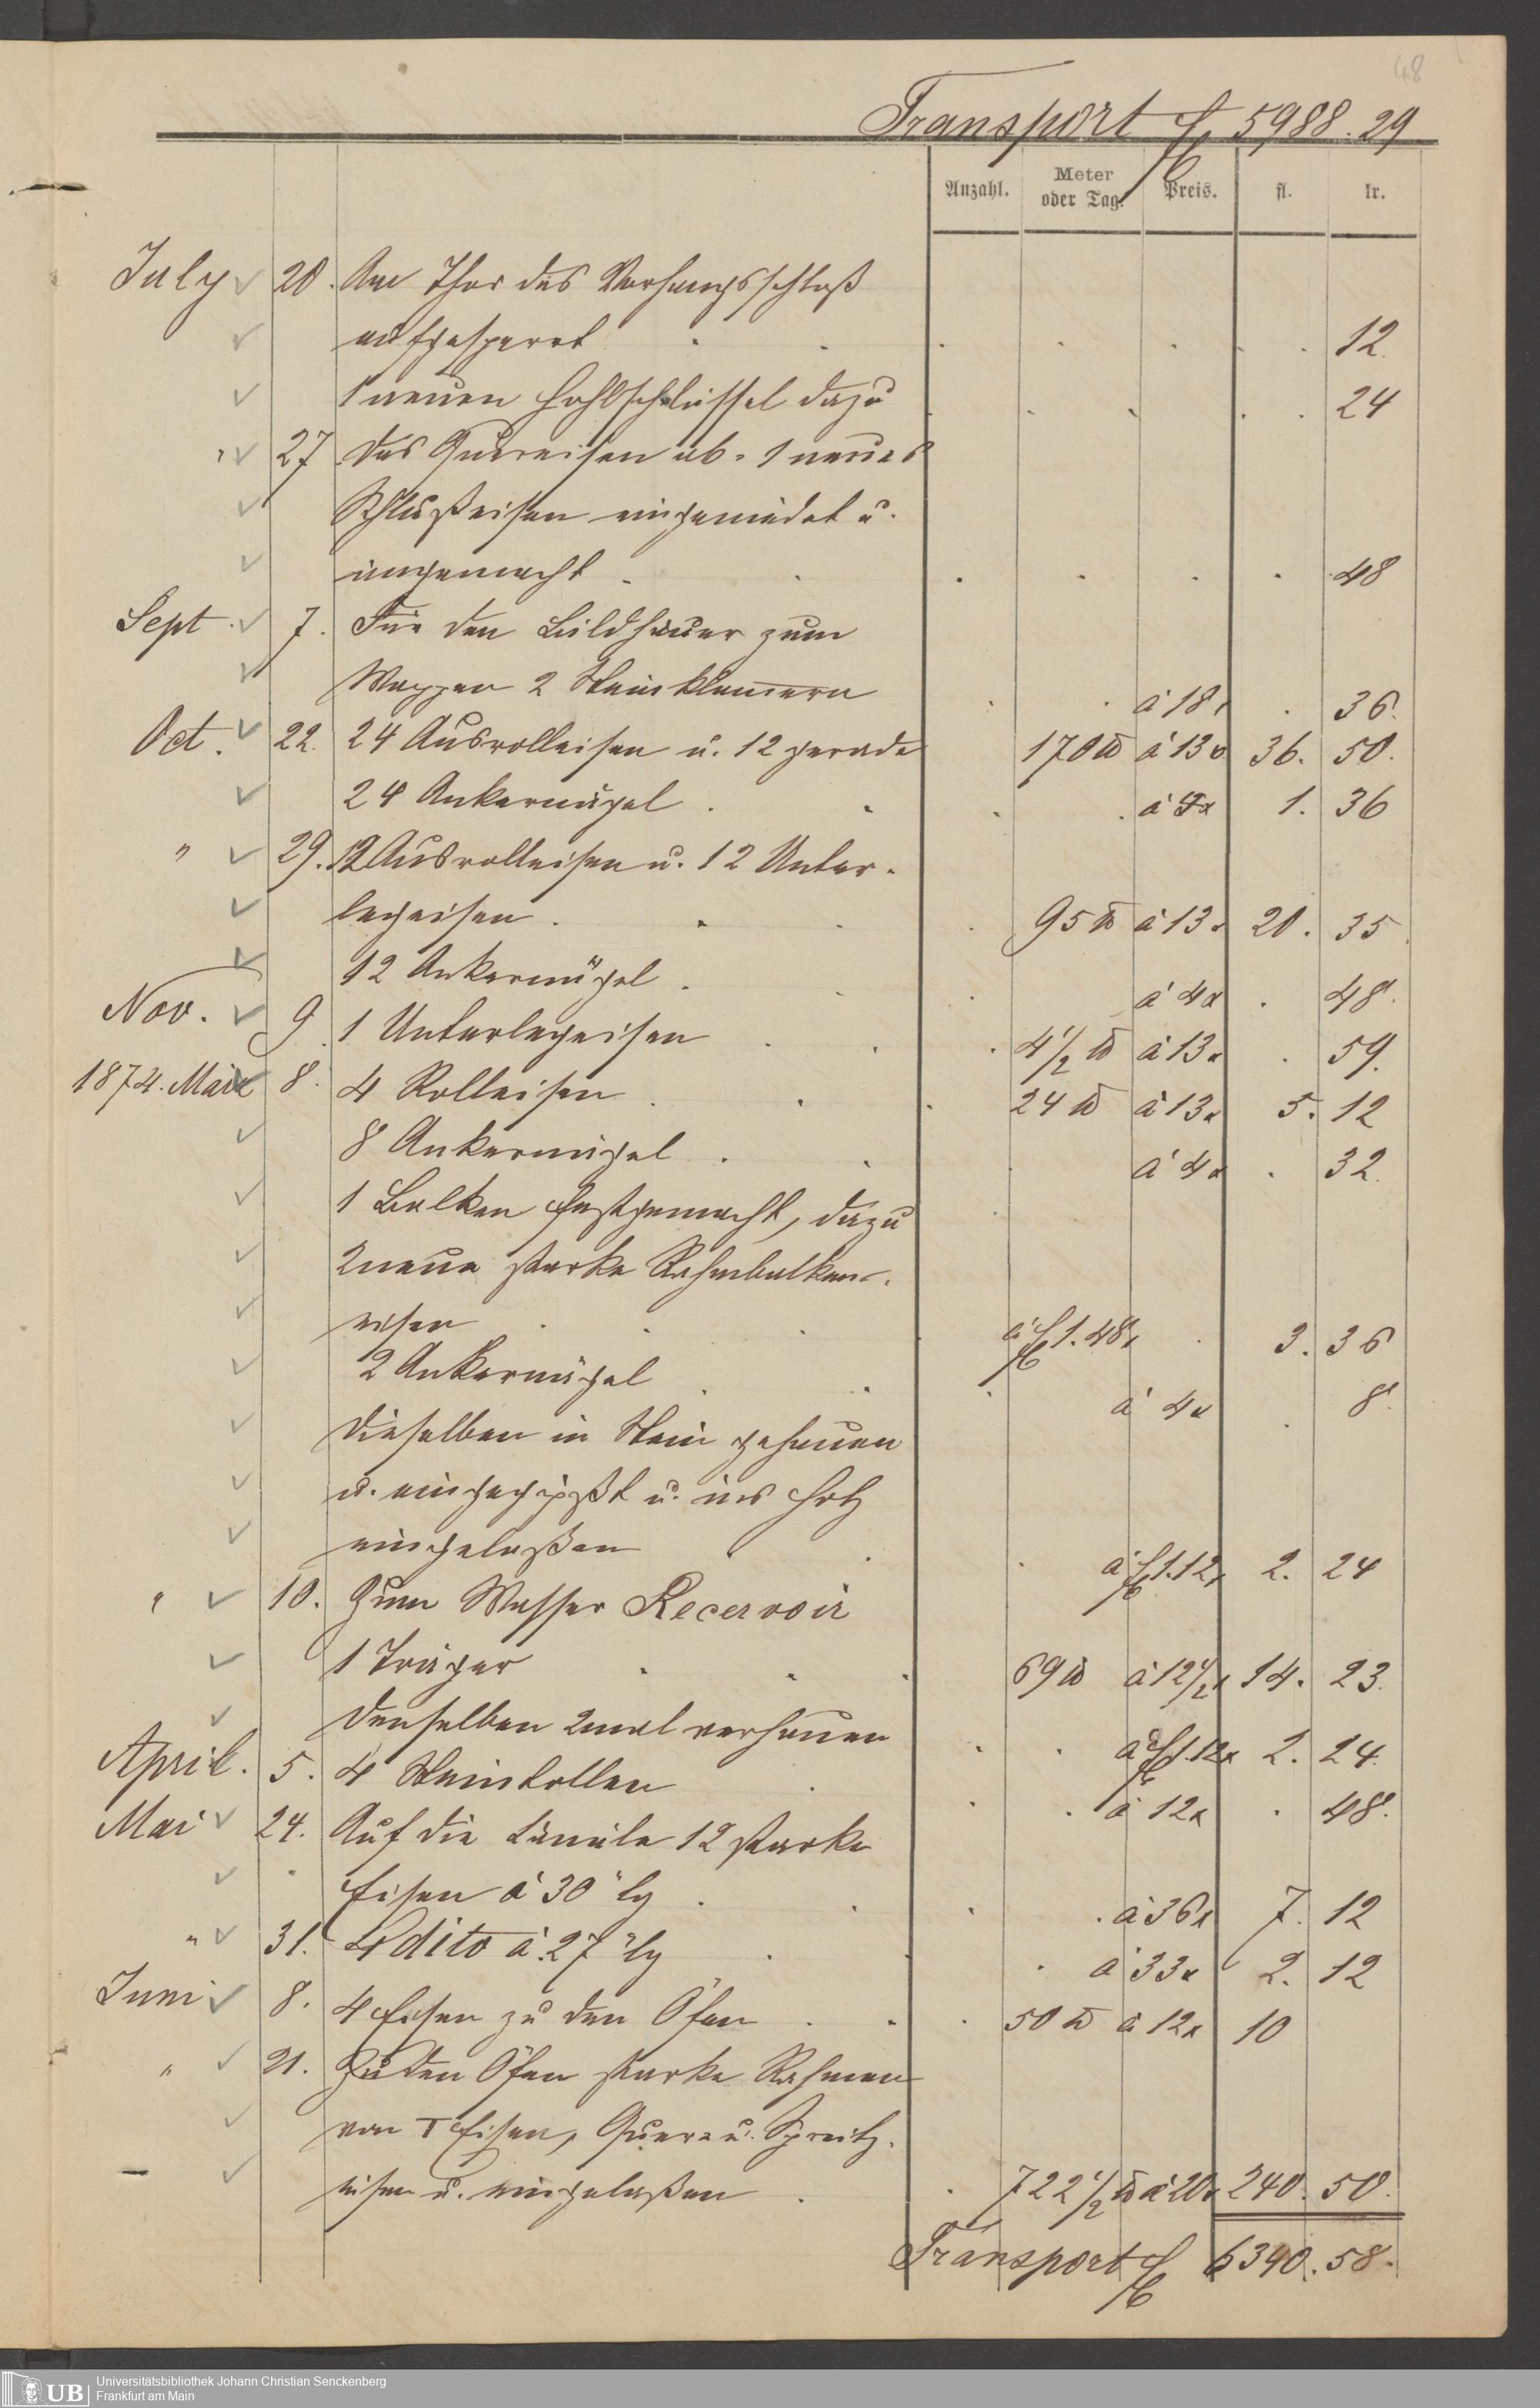 48
Transport f 5988.29
Anzahl. Meter oder Tag. Preis. fl. kr.
July 20. Am Thor das Vorhangschloß
aufgesperrt 12.
1 neuen Hohlschlüssel dazu 24
" 27 Das Quereisen ab- 1 neues
Schlußeisen eingenietet u.
angemacht 48
Sept. 7. Für den Bildhauer zum
Wappen 2 Steinklam̄ern à 18x 36.
Oct. 22. 24 Ausrolleisen u. 12 gerade 170 ℔ à 13x 36. 50.
24 Ankernägel à 4x 1. 36
" 29. 12 Ausrolleisen u. 12 Unter-
legeisen 95 ℔ à 13x 20. 35
12 Ankernägel à 4x 48.
Nov. 9 1 Unterlegeisen 4 1/2 ℔ à 13x 59.
1874. März 8. 4 Rolleisen 24 ℔ à 13x 5. 12
8 Ankernägel à 4x 32.
1 Balken festgemacht, dazu
2 neue starke Rahmbalken-
eisen à f 1.48x 3. 36
2 Ankernägel à 4x 8.
Dieselben in Stein gehauen
u. eingegipßt u. ins Holz
eingelaßen à f 1.12x 2. 24
" 10. Zum Wasser Recervoir
1 Träger 69 ℔ à 12 1/2x 14. 23.
Denselben 2 mal verhauen à f 1.12x 2. 24.
April. 5. 4 Steinkollen à 12x 48.
Mai 24. Auf die Canäle 12 starke
Eisen à 30" lg à 36x 7. 12
" 31. 4 dito à 27" lg à 33x 2. 12
Juni 8. 4 Eisen zu den Öfen 50 ℔ à 12x 10
" 21. Zu den Öfen starke Rahmen
von T Eisen, Quer- u. Spreitz-
eisen u. eingelaßen 722 1/2 ℔ à 20x 240. 50.
Transport f 6340.58.
UB Universitätsbibliothek Johann Christian Senckenberg
Frankfurt am Main